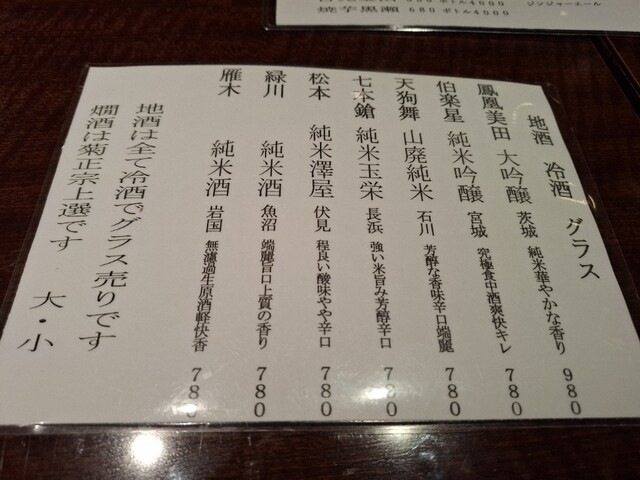 焼芋黒瀬 680 ボトル4000
ジンジャーエール
地酒 冷酒 グラス
鳳凰美田 大吟醸 茨城 純米華やかな香り 980
伯楽星 純米吟醸 宮城 究極食中酒爽快キレ 780
天狗舞 山廃純米 石川 芳醇な香味辛口端麗 780
七本鎗 純米玉栄 長浜 強い米旨み芳醇辛口 780
松本 純米澤屋 伏見 程良い酸味やや辛口 780
緑川 純米酒 魚沼 端麗旨口上質の香り 780
雁木 純米酒 岩国 無濾過生原酒軽快香 780
地酒は全て冷酒でグラス売りです
燗酒は菊正宗上選です 大・小